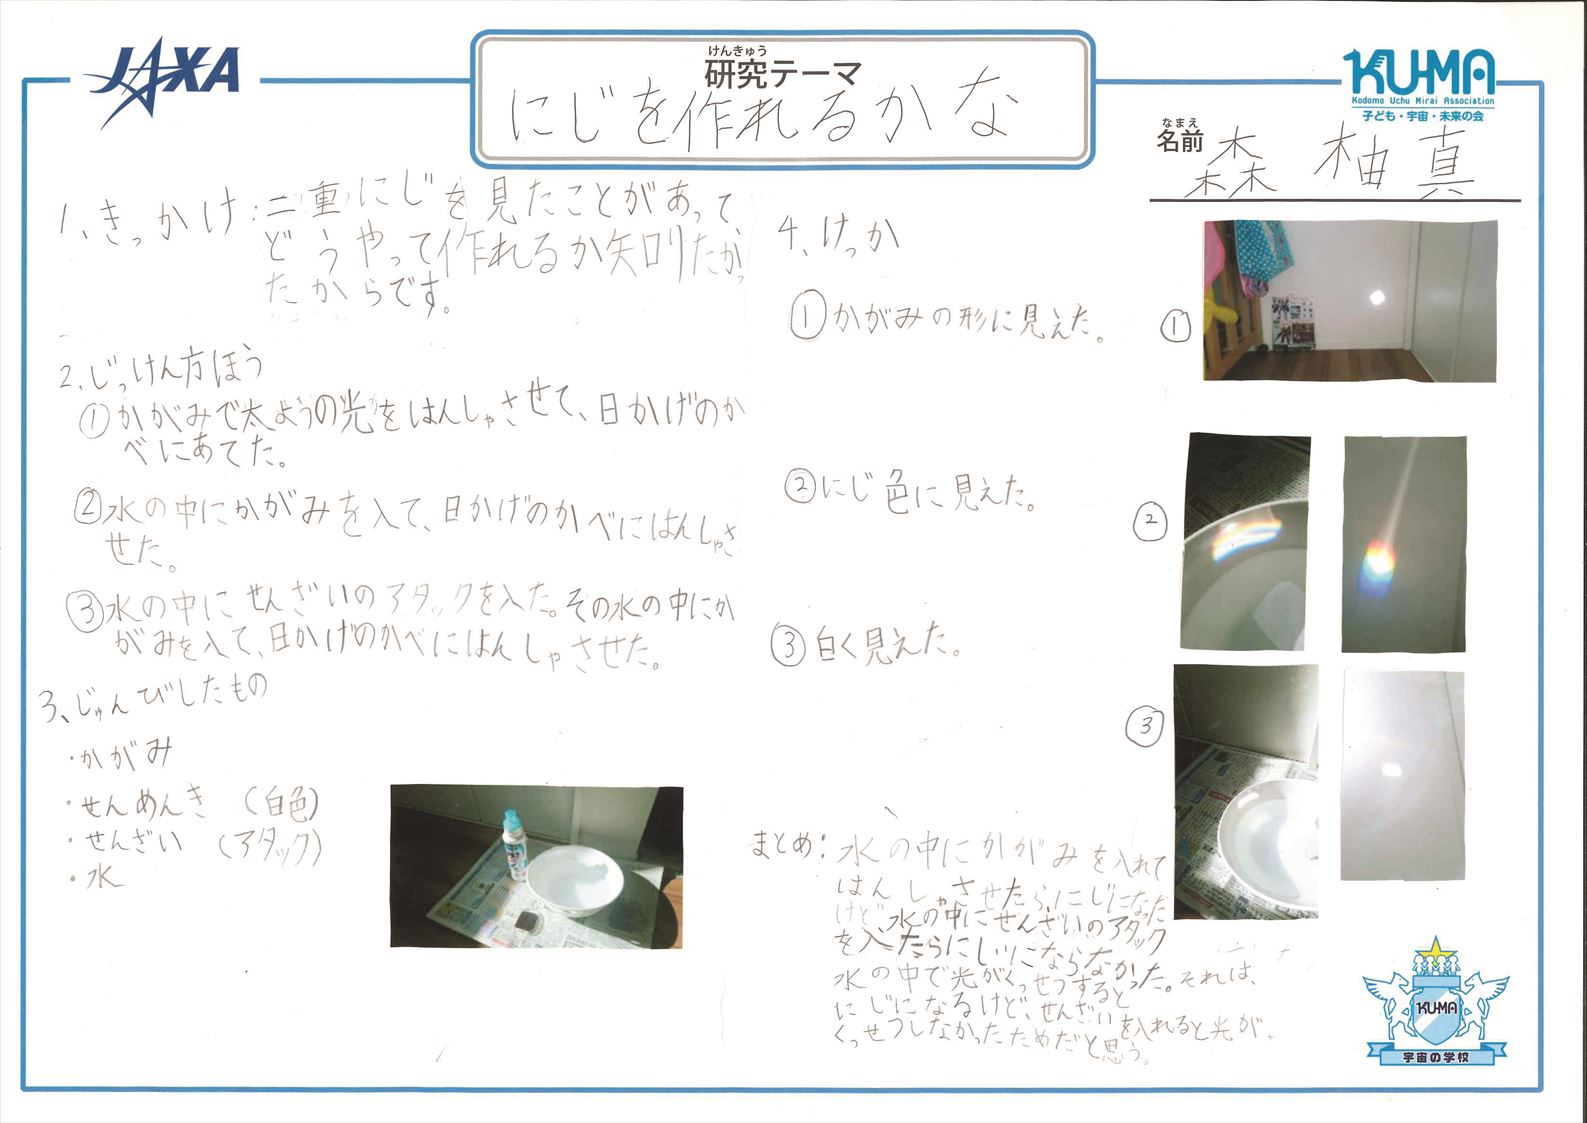 JAXA
けんきゅう
研究テーマ
にじを作れるかな
KU-MA
Kodomo Uchu Mirai Association
子ども・宇宙・未来の会
なまえ
名前
森 柚真
1、きっかけ:二重にじを見たことがあって、
どうやって作れるか知りたかっ
たからです。
2、じっけん方ほう
①かがみで太ようの光をはんしゃさせて、日かげのか
べにあてた。
②水の中にかがみを入て、日かげのかべにはんしゃさ
せた。
③水の中にせんざいのアタックを入た。その水の中にか
がみを入て、日かげのかべにはんしゃさせた。
3、じゅんびしたもの
・かがみ
・せんめんき (白色)
・せんざい (アタック)
・水
4、けっか
①かがみの形に見えた。
②にじ色に見えた。
③白く見えた。
①
②
③
まとめ:水の中にかがみを入れて
はんしゃさせたら、にじになった
けど、水の中にせんざいのアタック
を入たらにじにならなかった。それは、
水の中で光がくっせつすると
にじになるけど、せんざいを入れると光が
くっせつしなかったためだと思う。
KU-MA
宇宙の学校